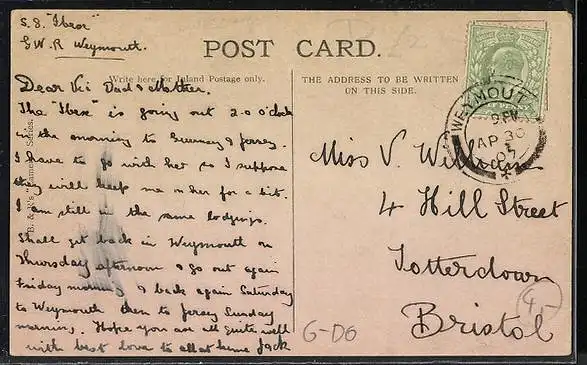 S.S. "Ibex"
G.W.R Weymouth.
POST CARD.
Write here for Inland Postage only.
THE ADDRESS TO BE WRITTEN
ON THIS SIDE.
Dear Vi Dad & Mother,
The "Ibex" is going out 2.0 o'clock
in the morning to Guernsey & Jersey.
I have to go with her so I suppose
they will keep me on her for a bit.
I am still in the same lodgings.
Shall get back in Weymouth on
Thursday afternoon & go out again
Friday morning & back again Saturday
to Weymouth then to Jersey Sunday
morning. Hope you are all quite well
with best love to all at home Jack
Series.
WEYMOUTH
AP 30
07
Miss V.
4 Hill Street
Totterdown
Bristol
G-DO